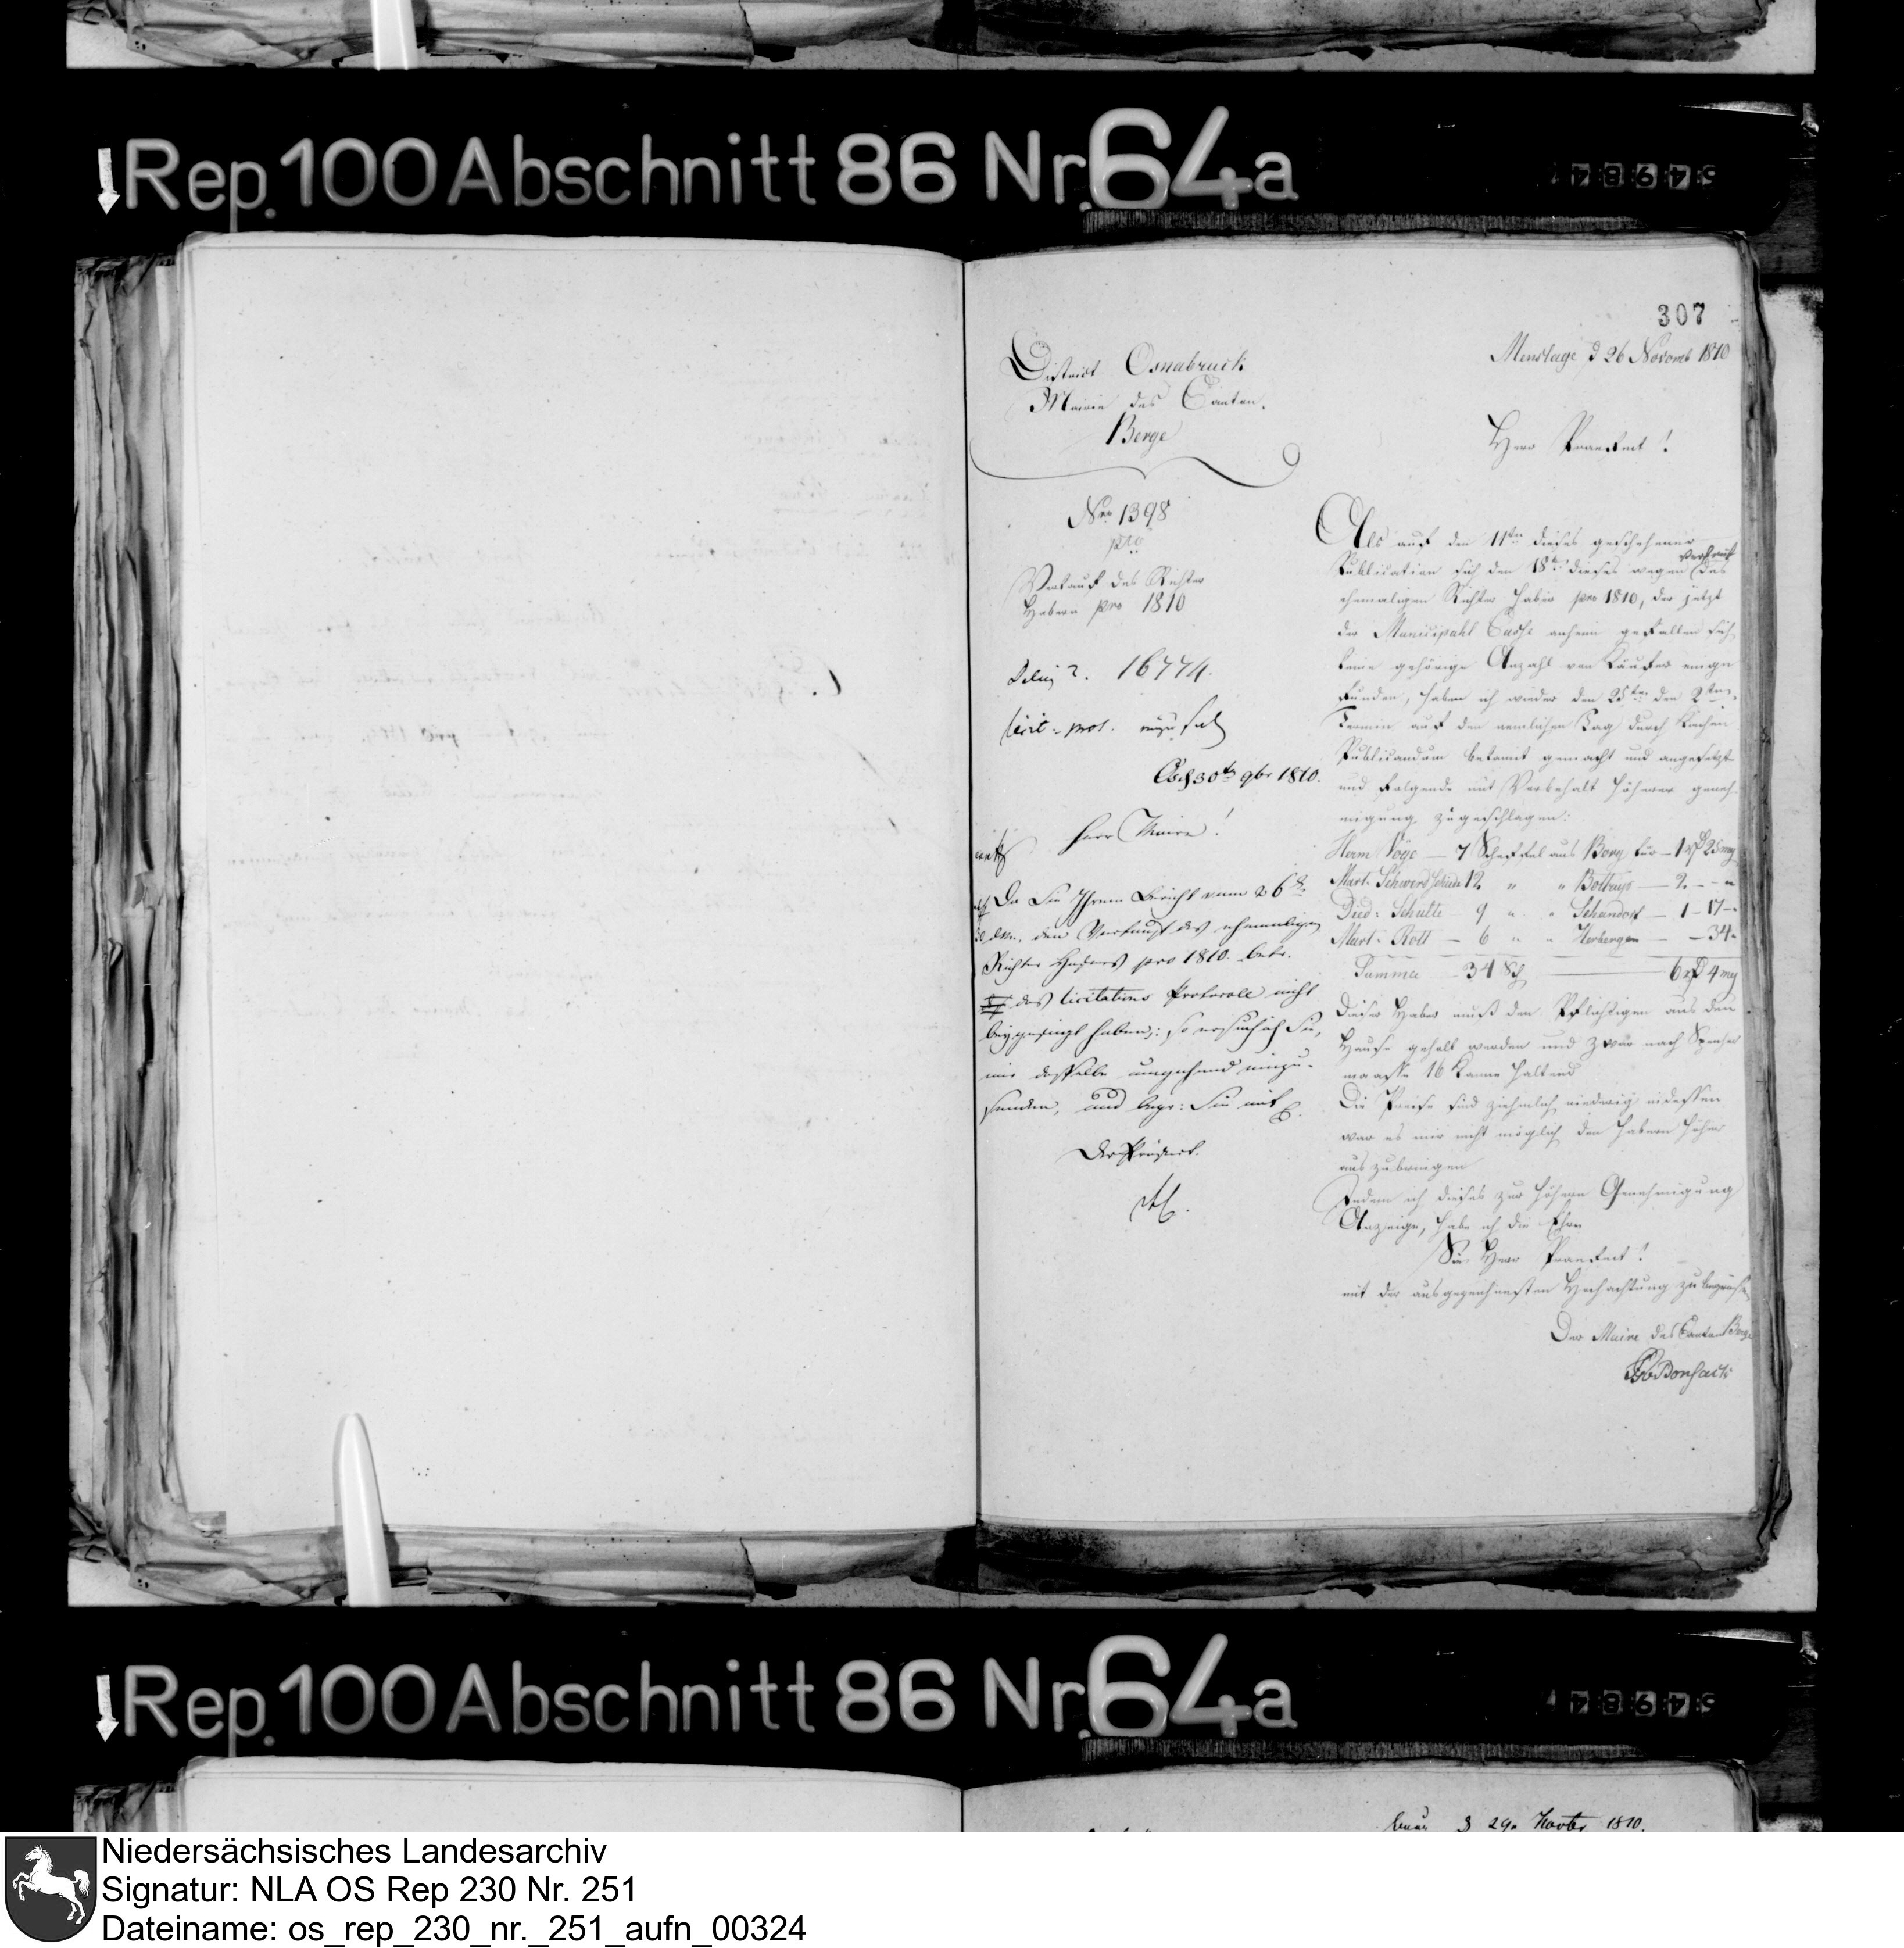 Rep. 100 Abschnitt 86 Nr. 64a
307
Menslage d 26 Novemb 1810
District Osnabruck
Mairie des Canton.
Berge
Herr Praefect!
Nro 1398
pto
Verkauf des Richter
Habern pro 1810
16774.
Licit: prot.
30ten 9br 1810.
Herr Maire!
Da Sie Ihrem Bericht vom 26t.
den Verkauf des ehemaligen
Richter Habers pro 1810. betr.
das Licitations Protocoll nicht
beygefügt haben; so ersuche ich Sie,
mir dasselbe umgehend einzu-
senden, und Sie mit
Der Präfect.
Als auf den 11ten dieses geschehener
Publication sich den 18t. dieses wegen Verkauf des
ehemaligen Richter Haber pro 1810, der jetzt
der Municipahl Casse anheim gefallen sich
keine gehörige Anzahl von Käufer einge
funden, habe ich wieder den 25ten den 2ten
Termin auf den nemlichen Tag durch Kirchen
Publicandum bekannt gemacht und angesetzt
und folgende mit Vorbehalt höherer geneh-
migung zugeschlagen:
Herm Vöge — 7 Scheffel aus Borg für — 1 rt 25 mg
Mart. 12 " " Bottrup — 2 - - "
Died: Schulte 9 " " Schandorf — 1 - 17 -
Mart: Rott — 6 " " Herbergen — - 34 "
Summa — 34 Sch — 6 rt 4 mg
Dieser Haber muß den Pflichtigen aus den
Hause geholt werden und zwar nach
maasse 16 Kanne haltend
Die Preise sind ziehmlich niedrig indessen
war es mir nicht möglich den Habern höher
auszubringen
Indem ich dieses zur höhern Genehmigung
Anzeige, habe ich die Ehre
Sie Herr Praefect!
mit der ausgezeichnesten Hochachtung zu
Der Maire des Canton Berge
Rep. 100 Abschnitt 86 Nr. 64a
29. Novbr 1810.
Niedersächsisches Landesarchiv
Signatur: NLA OS Rep 230 Nr. 251
Dateiname: os_rep_230_nr._251_aufn_00324